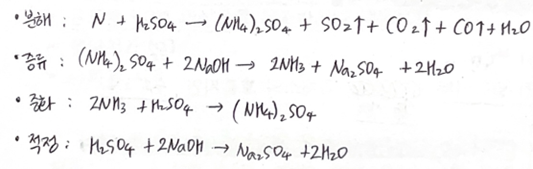 • 분해 : N + H₂SO₄ → (NH₄)₂SO₄ + SO₂↑ + CO₂↑ + CO↑ + H₂O
• 증류 : (NH₄)₂SO₄ + 2NaOH → 2NH₃ + Na₂SO₄ + 2H₂O
• 중화 : 2NH₃ + H₂SO₄ → (NH₄)₂SO₄
• 적정 : H₂SO₄ + 2NaOH → Na₂SO₄ + 2H₂O